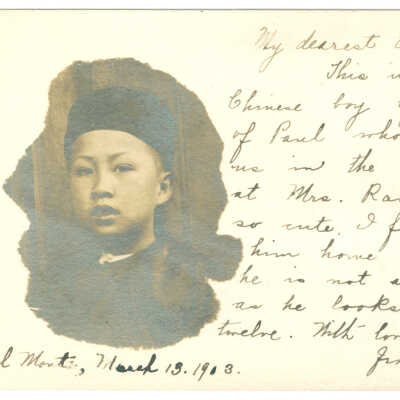 My dearest
This
Chinese boy
of Paul who
us in the
at Mrs.
so cute. I
him home
he is not a
as he looks
twelve. With
March 13. 1903.